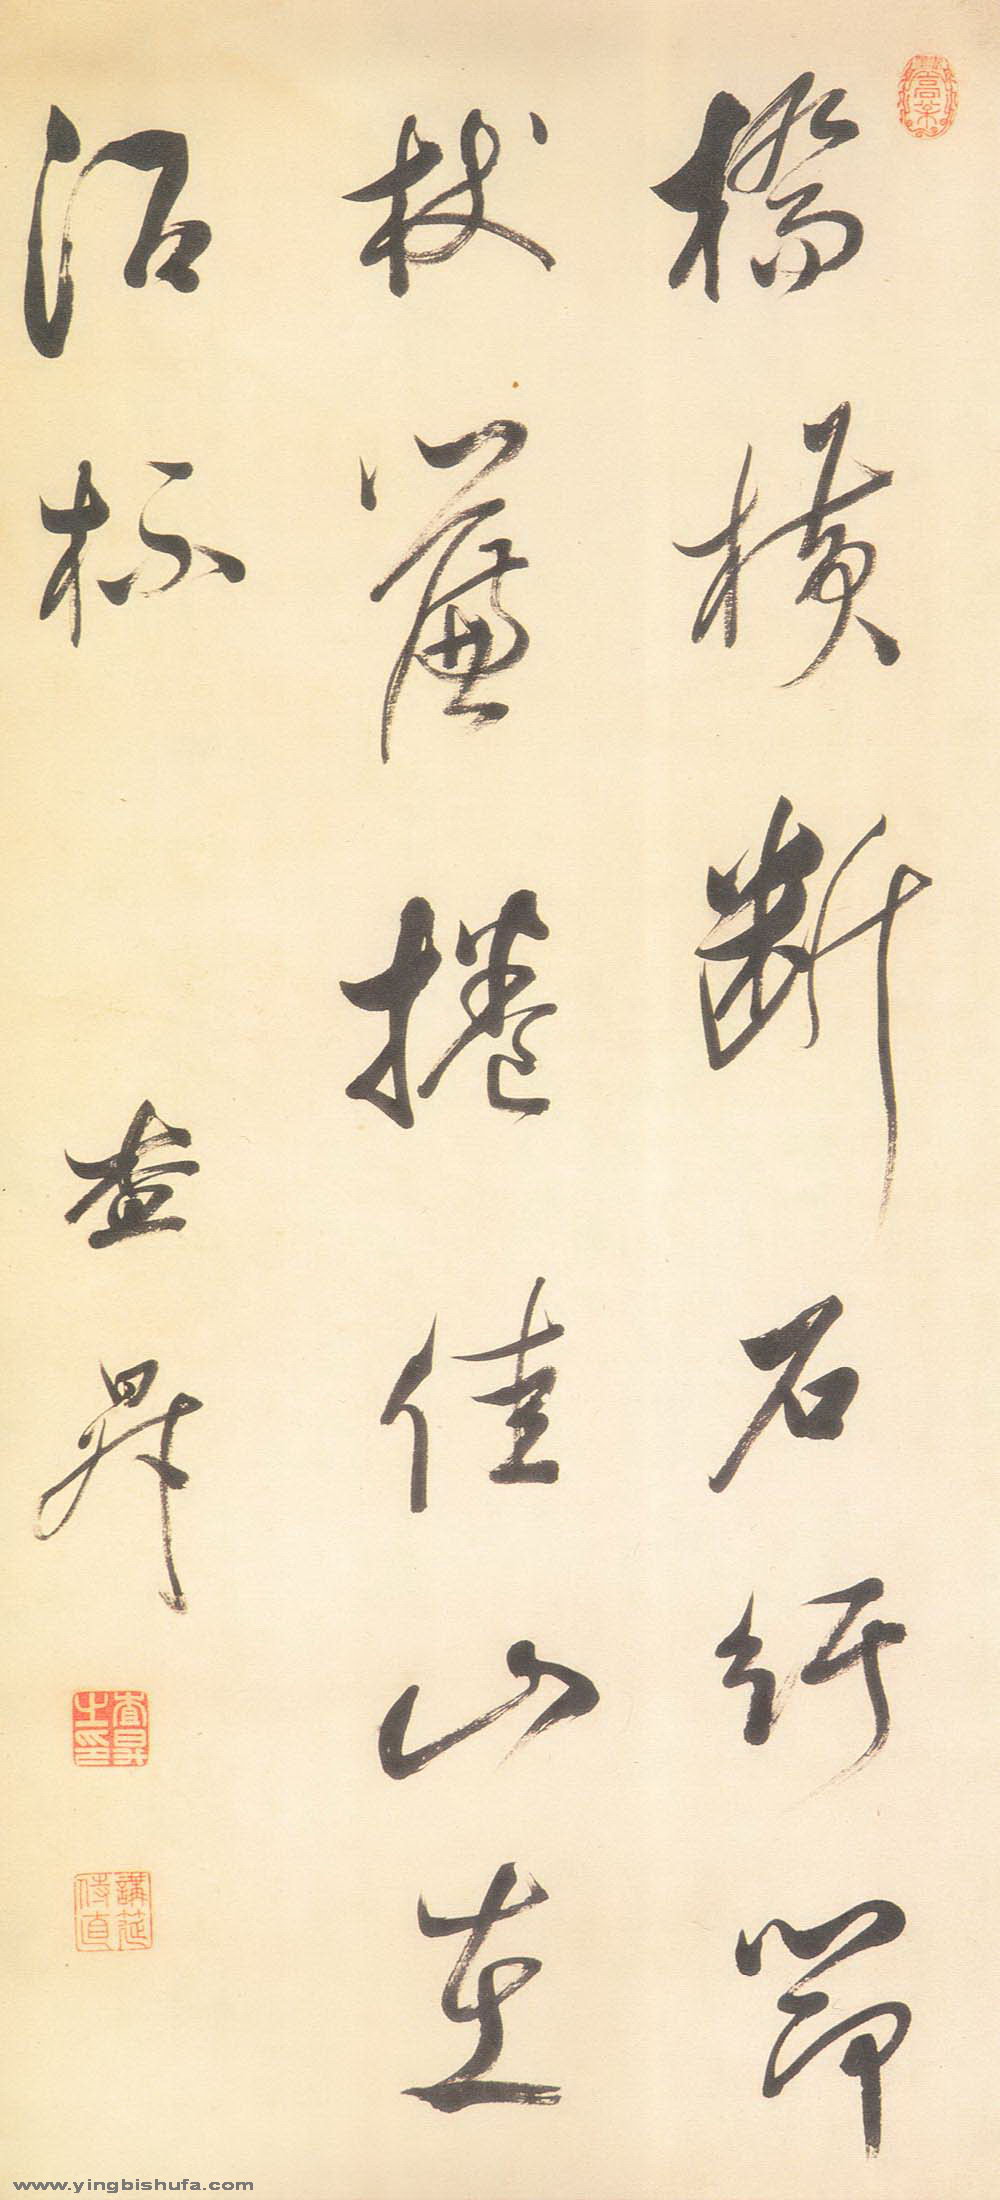 橋橫斷石紆筇
杖簾捲佳山在
酒杯 查昇
查昇之印
講筵侍直
www.yingbishufa.com